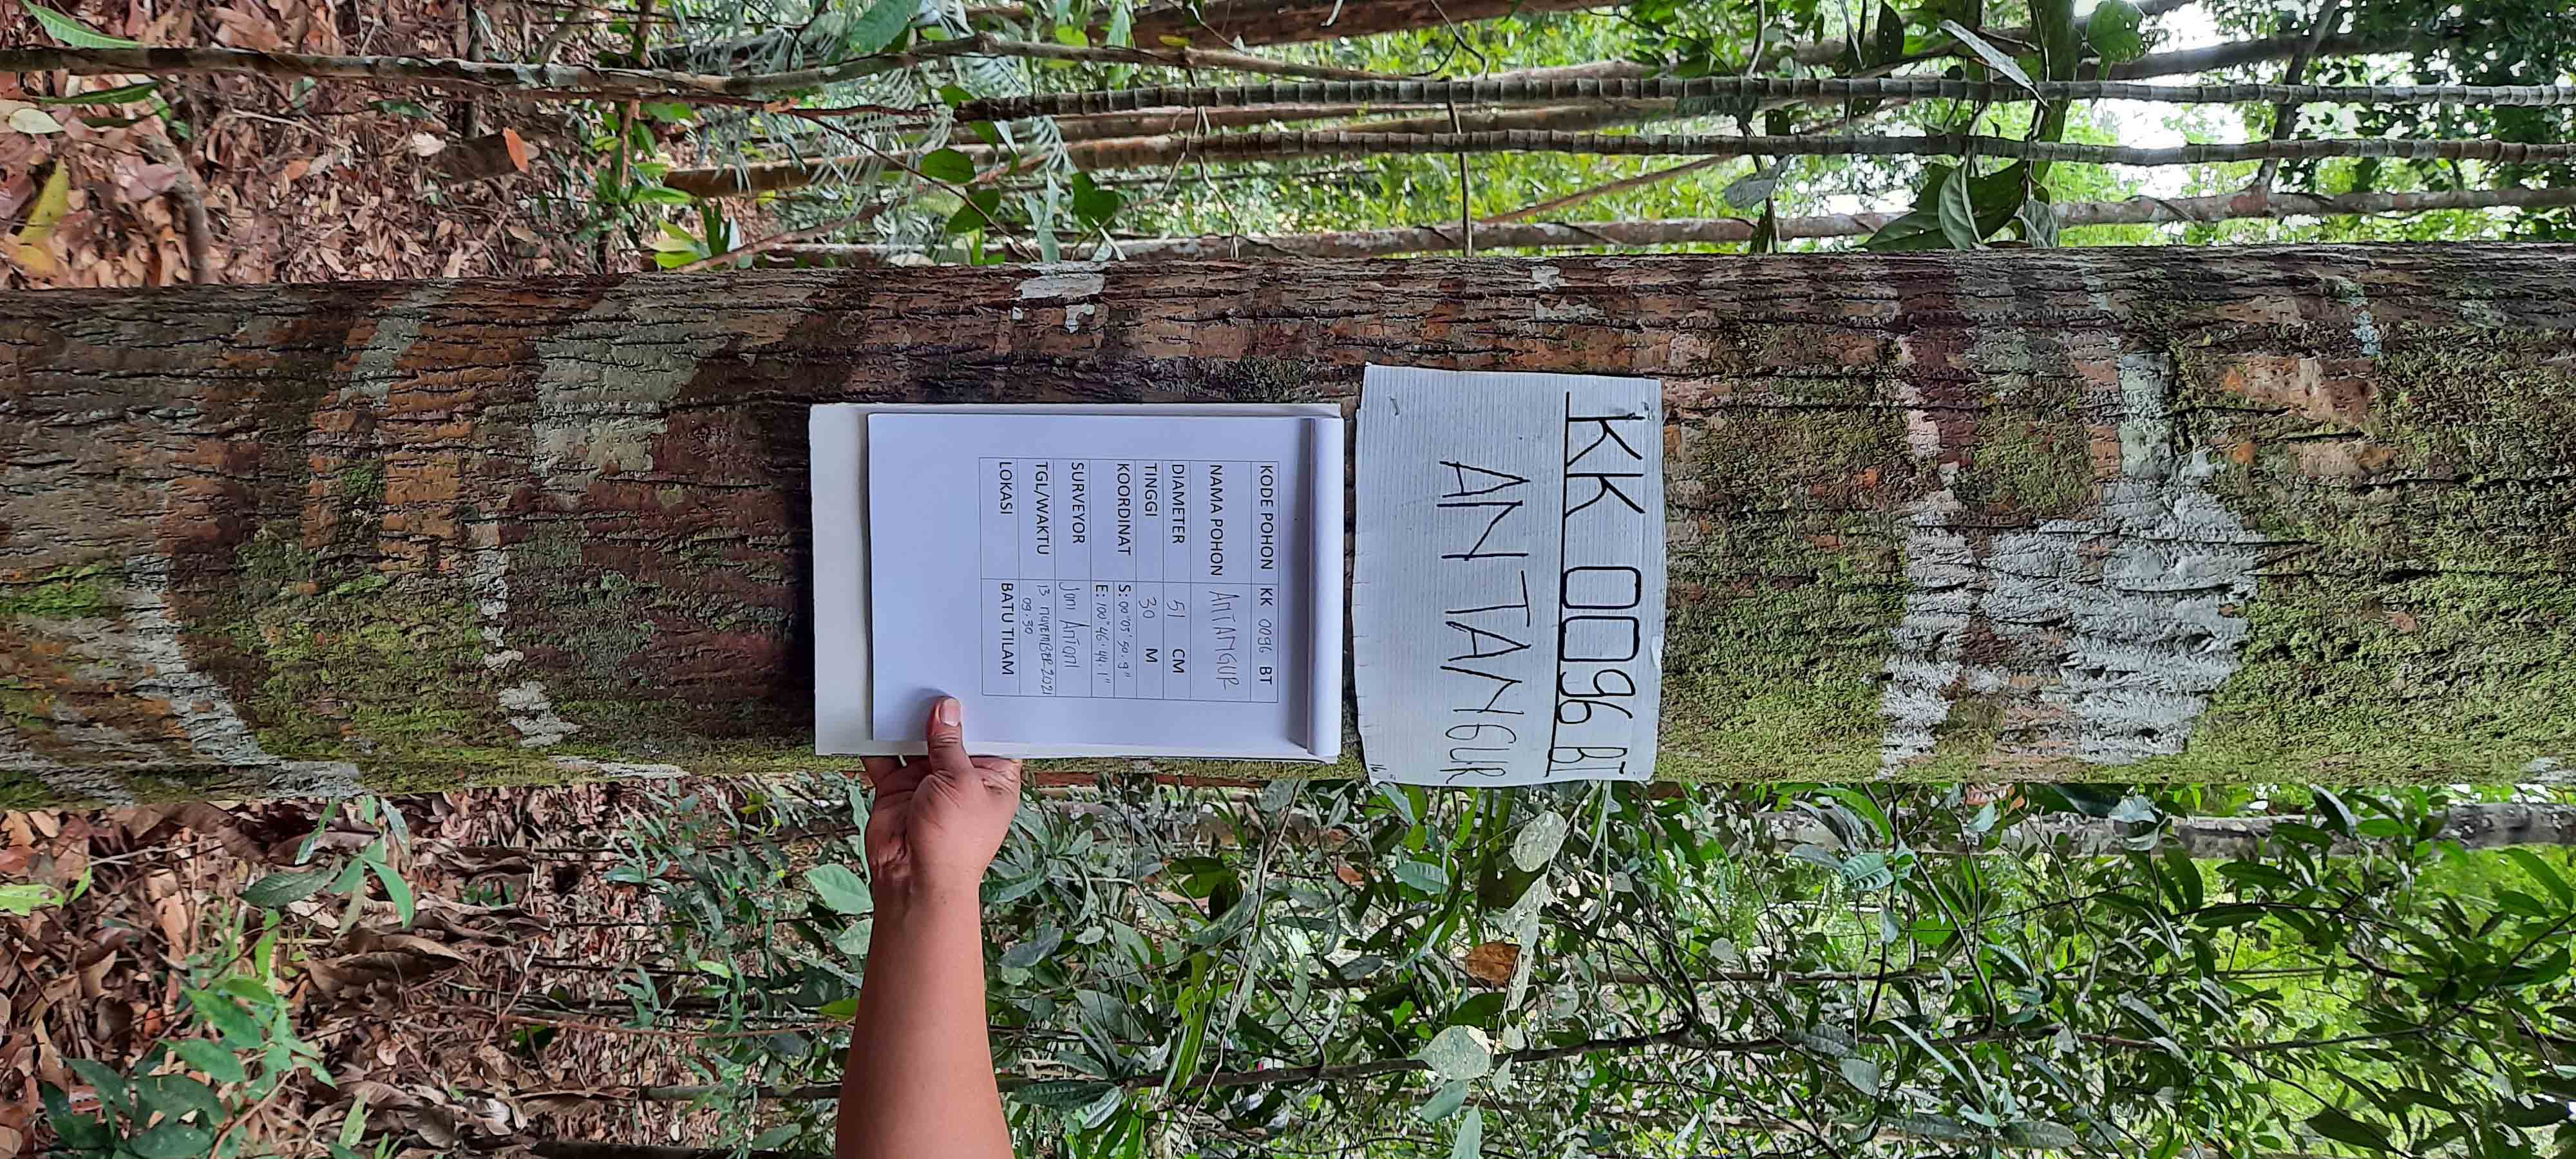 KK 0096 BT
ANTANGUR
KODE POHON KK 0096 BT
NAMA POHON ANTANGUR
DIAMETER 51 CM
TINGGI 30 M
KOORDINAT S: 00°03'50.9"
E: 100°46'44.1"
SURVEYOR Joni Antoni
TGL/WAKTU 13 NOVEMBER 2021
09.30
LOKASI BATU TILAM